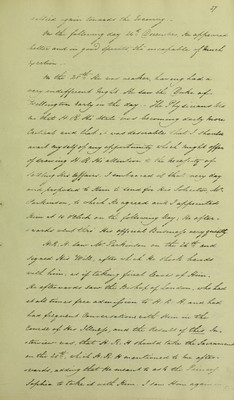 27
rallied again towards the Evening.
On the following day 24th December He appeared
better and in good Spirits tho' incapable of much
exertion.
On the 25th He was weaker, having had a
very indifferent night. He saw the Duke of
Wellington early in the day. The Physicians told
me that H.R.H's state was becoming daily more
critical and that it was desirable that I should
avail myself of any opportunity which might offer
of drawing H.R.H's attention to the necessity of
settling His Affairs. I embraced it that very day
and proposed to Him to send for His Solicitor Mr
Parkinson, to which He agreed and I appointed
Him at 10 o'Clock on the following Day; He after-
wards went thro' His official Business very quietly
H.R.H. saw Mr Parkinson on the 26th and
signed His Will, after which He shook hands
with him, as if taking final leave of Him.
He afterwards saw the Bishop of London, who had
at all times free admission to H.R.H. and had
had frequent Conversations with Him in the
Course of His Illness, and the Result of this In-
terview was that H.R.H should take the Sacrament
on the 28th, which H.R.H mentioned to me after-
wards, adding that He meant to ask the Princess
Sophia to take it with Him. I saw Him again in